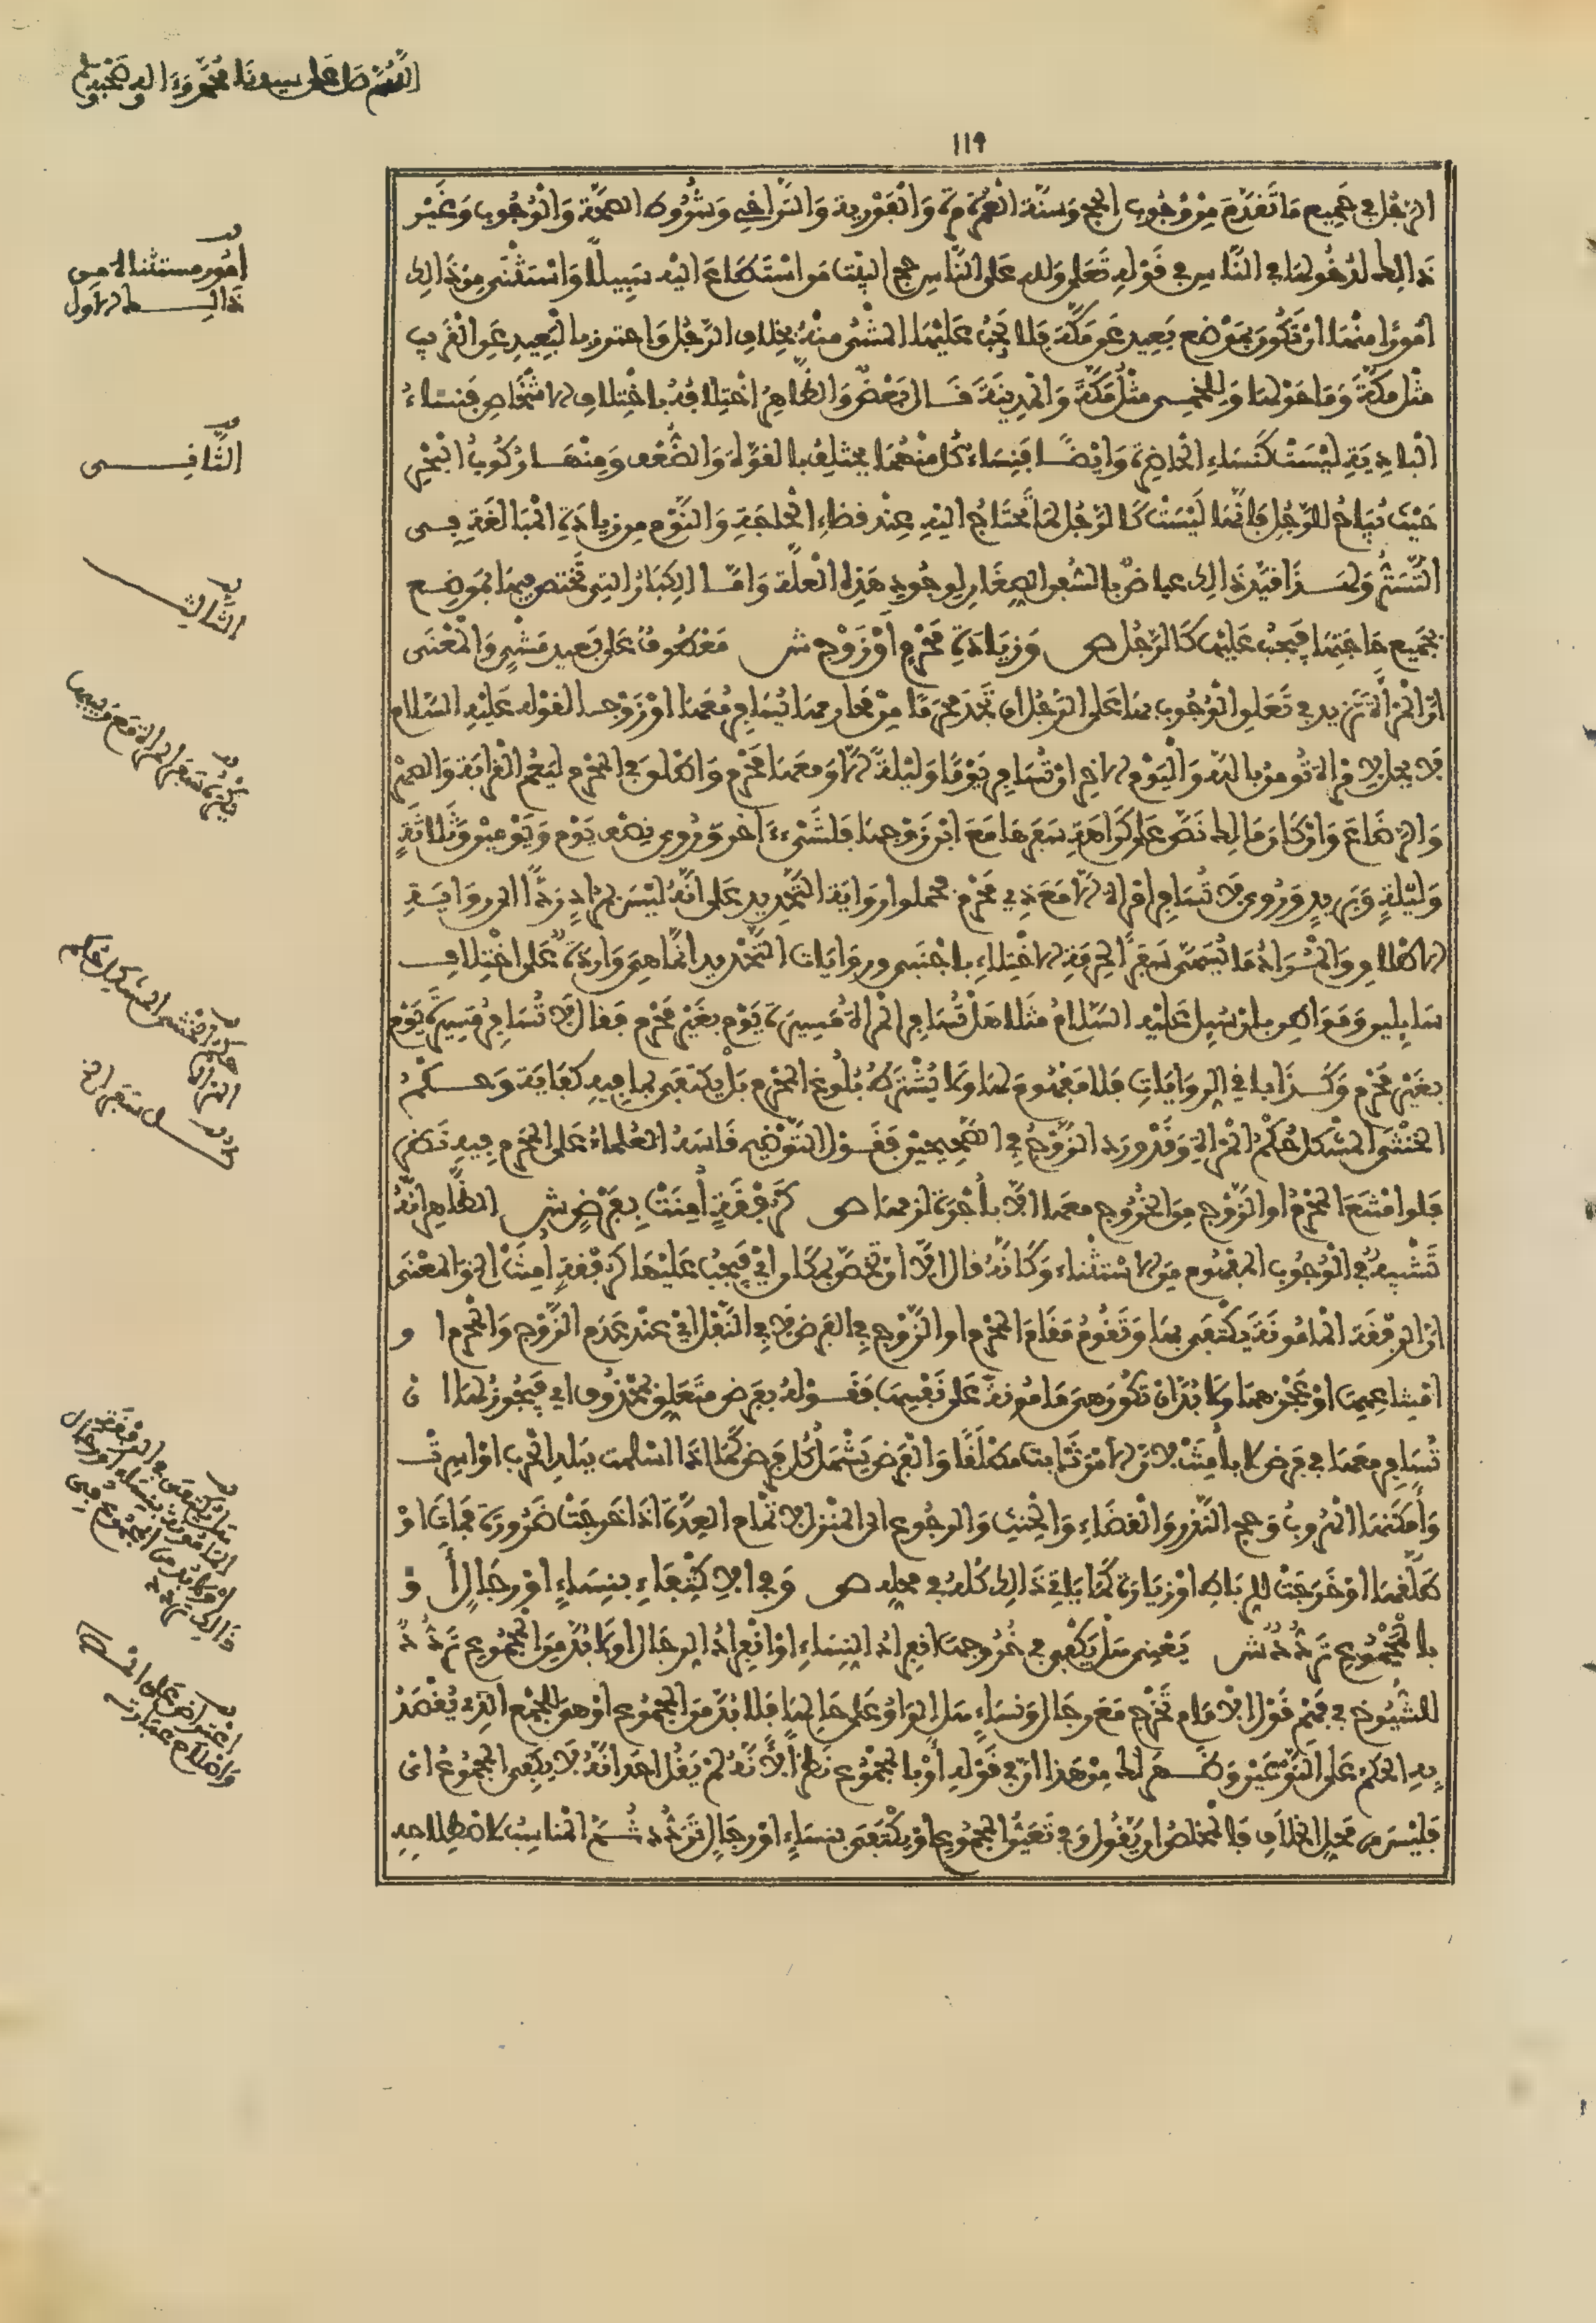 اللهم صل على سيدنا محمد وءاله وصحبه
119
الرجل في جميع ما تقدم من وجوب الحج وسنة العمرة مرة والفورية والتراخي وشروط الصحة والوجوب وغير
ذالك لدخولها في الناس في قوله تعلى ولله على الناس حج البيت من استطاع اليه سبيلا واستثنى من ذالك
امورا منها ان تكون بموضع بعيد عن مكة فلا يجب عليها المشي منه بخلاف الرجل واحترز بالبعيد عن القريب
مثل مكة وما حولها وللخمي مثل مكة والمدينة قال بعض والظاهر اختلافه باختلاف الاشخاص فنساء
البادية ليست كنساء الحاضرة وايضا فنساء كل منهما يختلف بالقوة والضعف ومنها ركوب البحر
حيث يباح للرجل فانها ليست كالرجل لما تحتاج اليه عند قضاء الحاجة والنوم من زيادة المبالغة في
التستر ولهذا قيد ذالك عياض بالسفن الصغار لوجود هذه العلة واما الكبار التي تختص فيها بموضع
بجميع حاجتها فيجب عليها كالرجل ص وزيادة محرم أو زوج ش معطوف على بعيد مشي والمعنى
ان المرأة تزيد في تعلق الوجوب بها على الرجل ان تجد محرما من محارمها يسافر معها او زوجا لقوله عليه السلام
لا يحل لامرأة تومن بالله واليوم الاخر ان تسافر يوما وليلة الا ومعها محرم واطلق في المحرم ليعم القرابة والصهر
والرضاع وان كان مالك نص على كراهة سفرها مع ابن زوجها فلشيء ءاخر وروي نصف يوم ويومين وثلاثة
وليلة وبريد وروي لا تسافر امرأة الا مع ذي محرم فحملوا رواية التحديد على انه ليس بمراد ردا الى رواية
الاطلاق والمراد ما يسمى سفرا لحرمة الاختلاء باجنبي وروايات التحديد انما هي واردة على اختلاف
سايلين ومواطن بان سيل عليه السلام مثلا هل تسافر المرأة مسيرة يوم بغير محرم فقال لا تسافر مسيرة يوم
بغير محرم وكذا باقي الروايات فلا مفهوم لها ولا يشترط بلوغ المحرم بل يكتفى بما فيه كفاية وحكم
الخنثى المشكل حكم المرأة وقد ورد الزوج في الصحيحين فقول التوضيح قاسه العلماء على المحرم فيه نظر
فلو امتنع المحرم او الزوج من الخروج معها الا بأجرة لزمها ص كرفقة أمنت بفرض ش الظاهر انه
تشبيه في الوجوب المفهوم من الاستثناء وكانه قال الا ان تختص بمكان اي فيجب عليها كرفقة امنت الخ والمعنى
ان الرفقة المامونة يكتفى بها وتقوم مقام المحرم او الزوج في الفرض لا في النفل اي عند عدم الزوج والمحرم ا و
امتناعهما او عجزهما ولا بد ان تكون هي مامونة على نفسها فقوله بفرض متعلق بمحذوف اي فيجوز لها ا ن
تسافر معها في فرض لا بأمنت لان الامن ثابت مطلقا والفرض يشمل كل فرض كما اذا اسلمت ببلد الحرب او اسرت
وأمكنها الهروب وحج النذر والقضاء والحنث والرجوع الى المنزل لاتمام العدة اذا خرجت ضرورة فمات او
طلقها او خرجت للرباط او زيارة كما ياتي ذالك كله في محله ص وفي الاكتفاء بنساء او رجال أ و
بالمجموع تردد ش يعني هل يكفي في خروجها انفراد النساء او انفراد الرجال او لا بد من المجموع تردد
للشيوخ في فهم قول الامام تخرج مع رجال ونساء هل الواو على حالها فلا بد من المجموع او هو للجمع الذي يقصد
به الحكم على النوعين وظهر لك من هذا ان في قوله أو بالمجموع نظرا لانه لم يقل احد انه لا يكفي المجموع اي
فليس من محل الخلاف فالمخلص ان يقول وفي تعين المجموع او يكتفى بنساء او رجال تردد ثم المناسب لاصطلاحه
امور مستثناة من
ذالك الاول
الثاني
الثالث
حكم الخنثى المشكل
هل يكتفى في الرفقة
المامونة بنساء او رجال
او لا بد من المجموع في
ذالك
اعتراض على المص
واصلاح عبارته